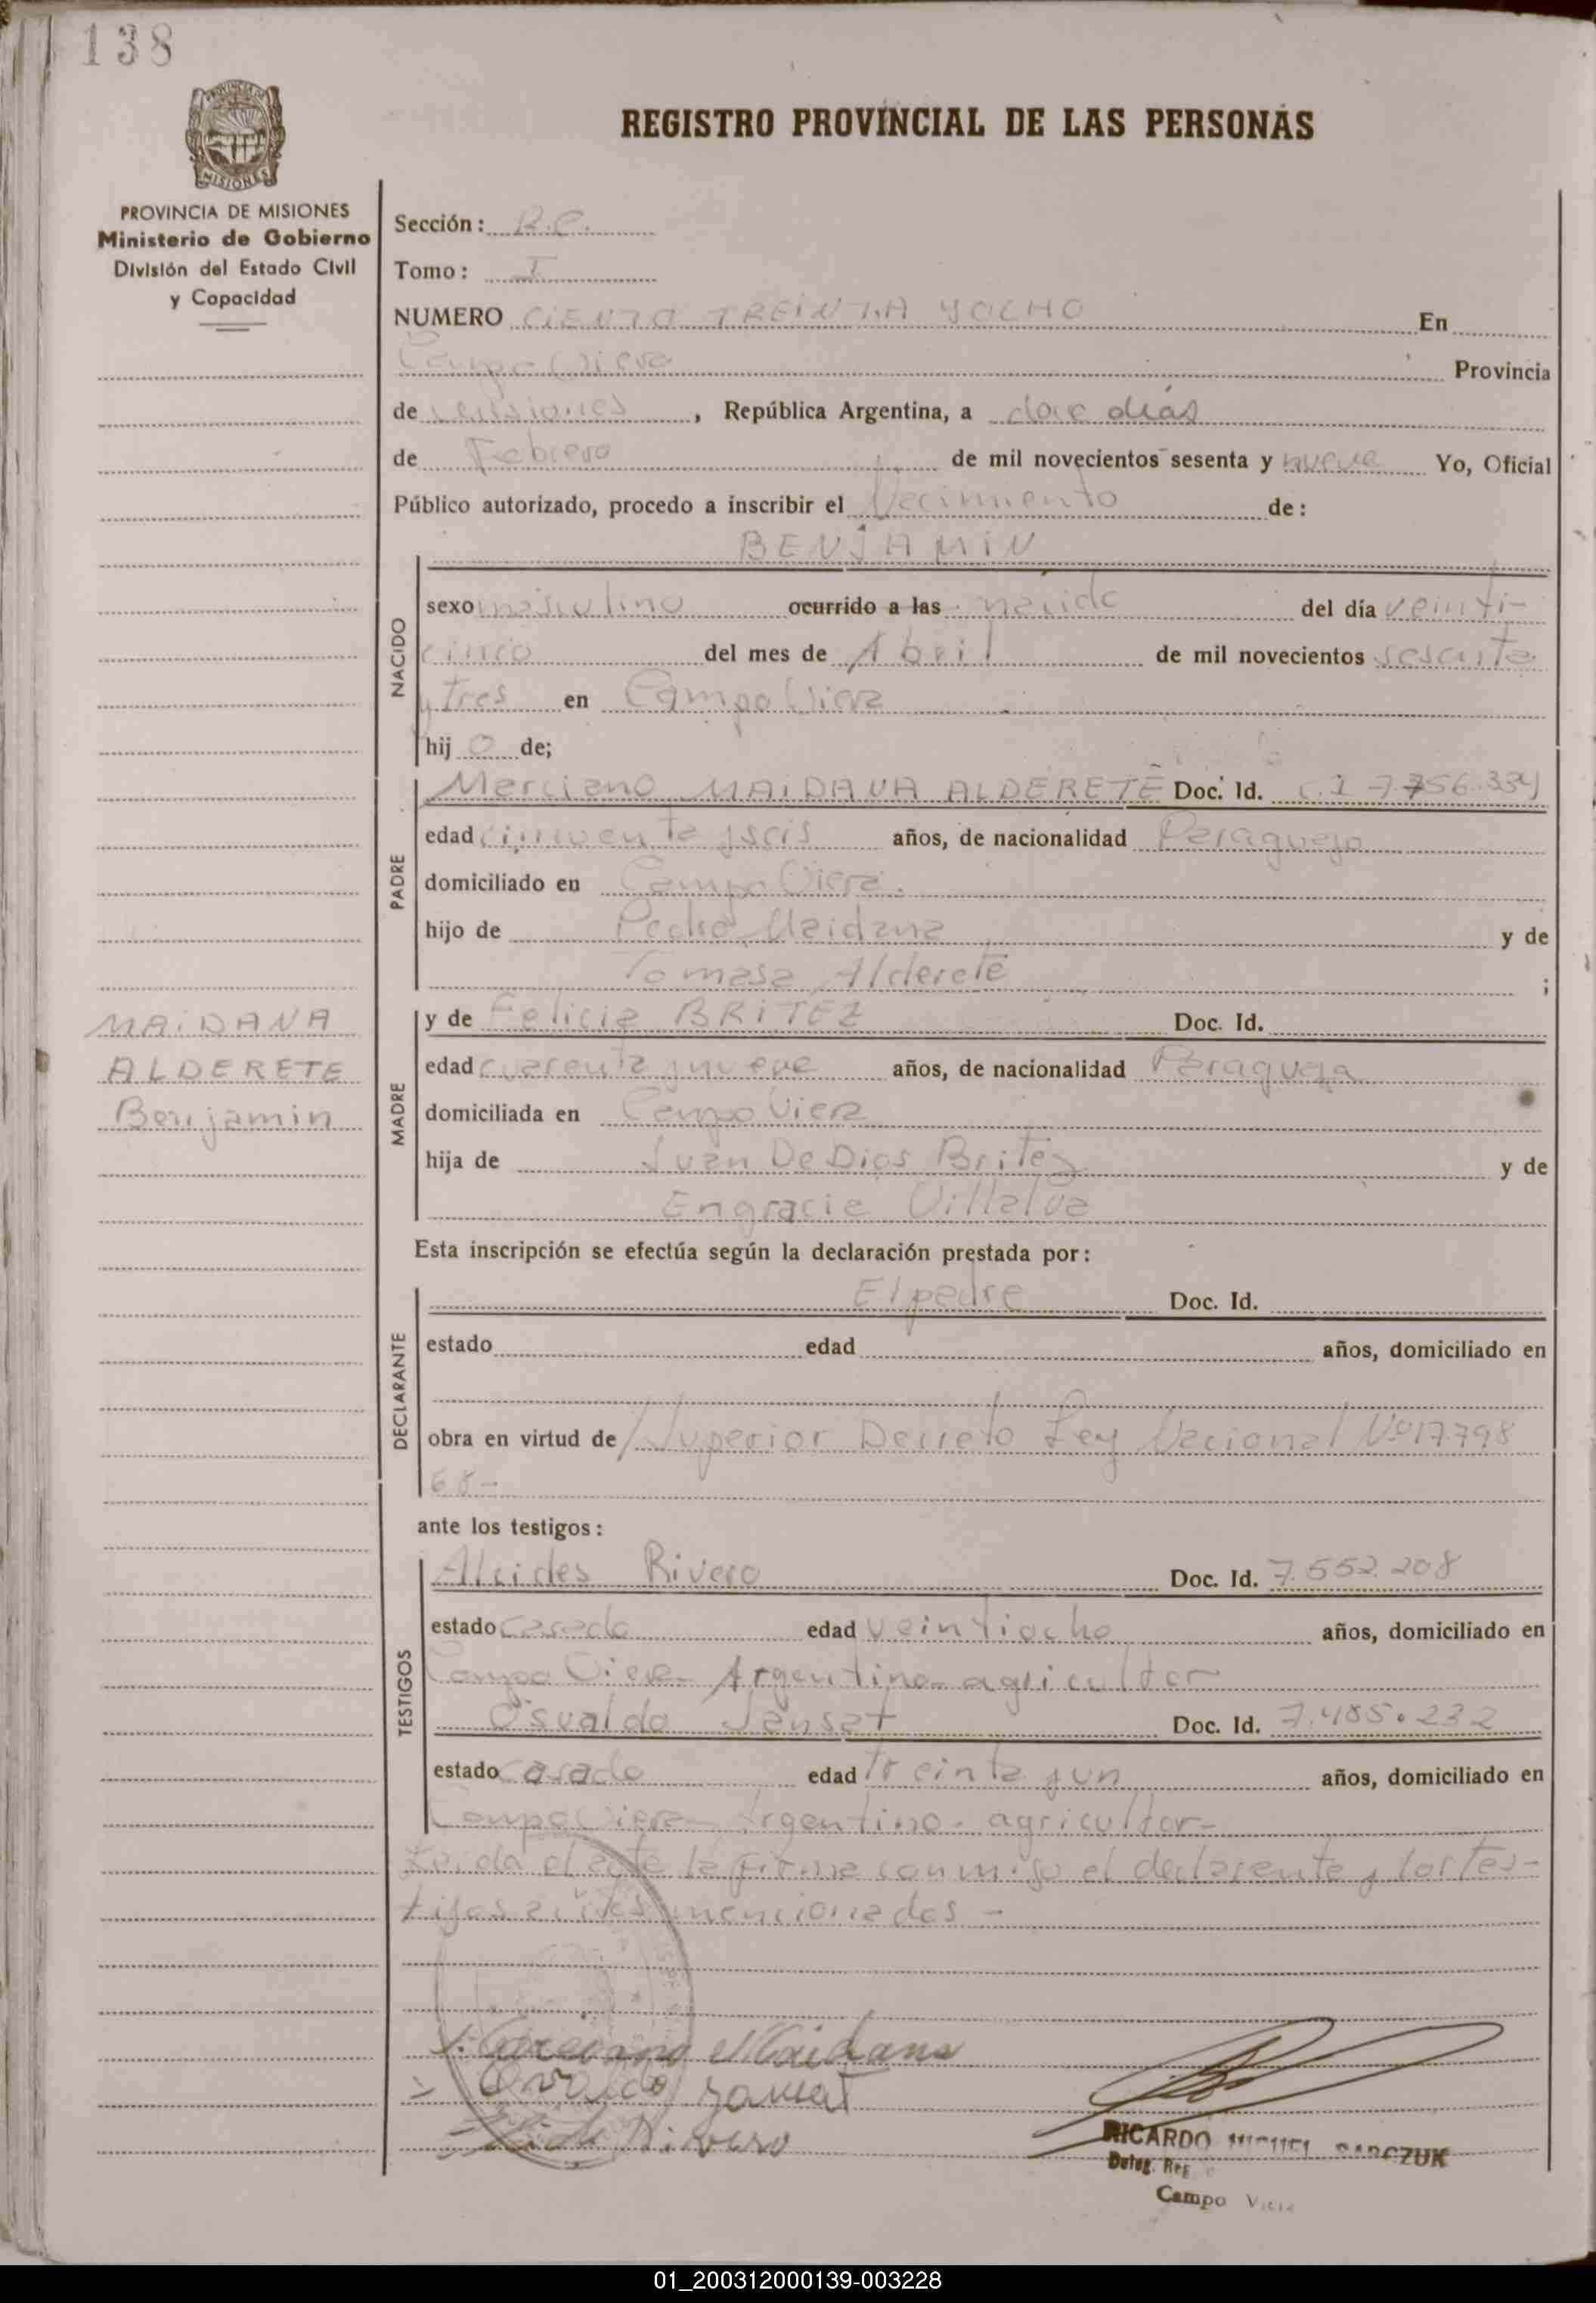 138
PROVINCIA DE MISIONES
Ministerio de Gobierno
División del Estado Civil
y Capacidad
REGISTRO PROVINCIAL DE LAS PERSONAS
Sección: R.C.
Tomo: I
NUMERO CIENTO TREINTA Y OCHO En
Campo Viera Provincia
de Misiones, República Argentina, a doce días
de Febrero de mil novecientos sesenta y nueve Yo, Oficial
Público autorizado, procedo a inscribir el Nacimiento de:
BENJAMIN
NACIDO
sexo masculino ocurrido a las nacido del día veinti-
cinco del mes de Abril de mil novecientos sesenta
y tres en Campo Viera
hij o de;
PADRE
Merciano MAIDANA ALDERETE Doc. Id. C.I 7.756.334
edad cincuenta y seis años, de nacionalidad Paraguaya
domiciliado en Campo Viera.
hijo de Pedro Maidana y de
Tomasa Alderete ;
MAIDANA
ALDERETE
Benjamin
MADRE
y de Felicia BRITEZ Doc. Id.
edad cuarenta y nueve años, de nacionalidad Paraguaya
domiciliada en Campo Viera
hija de Juan De Dios Britez y de
Engracia Villalva
Esta inscripción se efectúa según la declaración prestada por:
DECLARANTE
El padre Doc. Id.
estado edad años, domiciliado en
obra en virtud de Superior Decreto Ley Nacional Nº 17.798
68-
ante los testigos:
TESTIGOS
Alcides Rivero Doc. Id. 7.552.208
estado casado edad veintiocho años, domiciliado en
Campo Viera- Argentino- agricultor
Osvaldo Jansat Doc. Id. 7.485.232
estado casado edad treinta y un años, domiciliado en
Campo Viera- Argentino- agricultor-
Leida el acta la firma conmigo el declarante y los tes-
tigos antes mencionados -
Maidana
Rivero
RICARDO MIGUEL
Deleg. Reg
Campo Viera
01_200312000139-003228